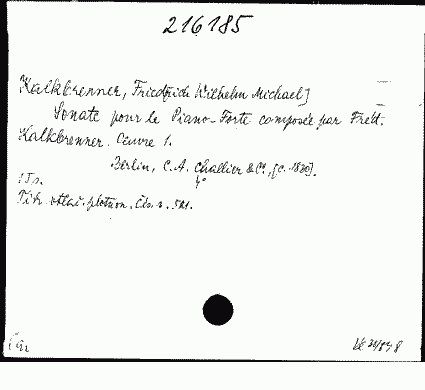 216185
Kalkbrenner, Friedrich Wilhelm Michael]
Sonate pour le Piano-Forte composée par Fréd.
Kalkbrenner. Oeuvre 1.
Berlin, C. A. Challier & Co, [c. 1820].
4°
15 s.
Tit. čís. n. 521.